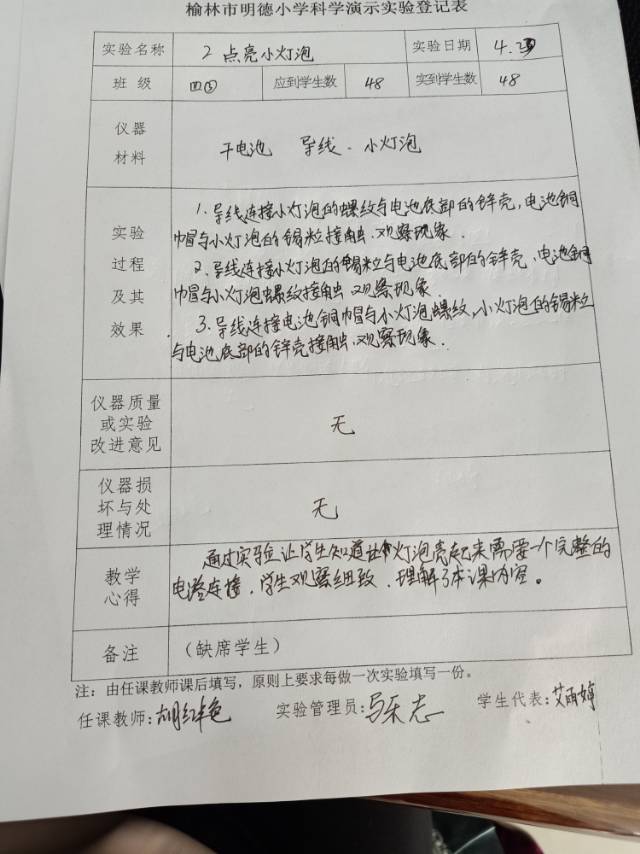 榆林市明德小学科学演示实验登记表
实验名称 2 点亮小灯泡 实验日期 4.
班 级 应到学生数 48 实到学生数 48
仪器
材料
干电池 导线、小灯泡
实验
过程
及其
效果
1.导线连接小灯泡的螺纹与电池底部的锌壳,电池铜
帽与小灯泡的锡粒接触,观察现象.
2.导线连接小灯泡的锡粒与电池底部的锌壳,电池铜
帽与小灯泡螺纹接触,观察现象.
3.导线连接电池铜帽与小灯泡螺纹,小灯泡的锡粒
与电池底部的锌壳接触,观察现象.
仪器质量
或实验
改进意见
无
仪器损
坏与处
理情况
无
教学
心得
通过实验让学生知道让小灯泡亮起来需要一个完整的
电路连接,学生观察细致,理解了本课内容。
备注 (缺席学生)
注:由任课教师课后填写,原则上要求每做一次实验填写一份。
任课教师: 实验管理员: 学生代表: